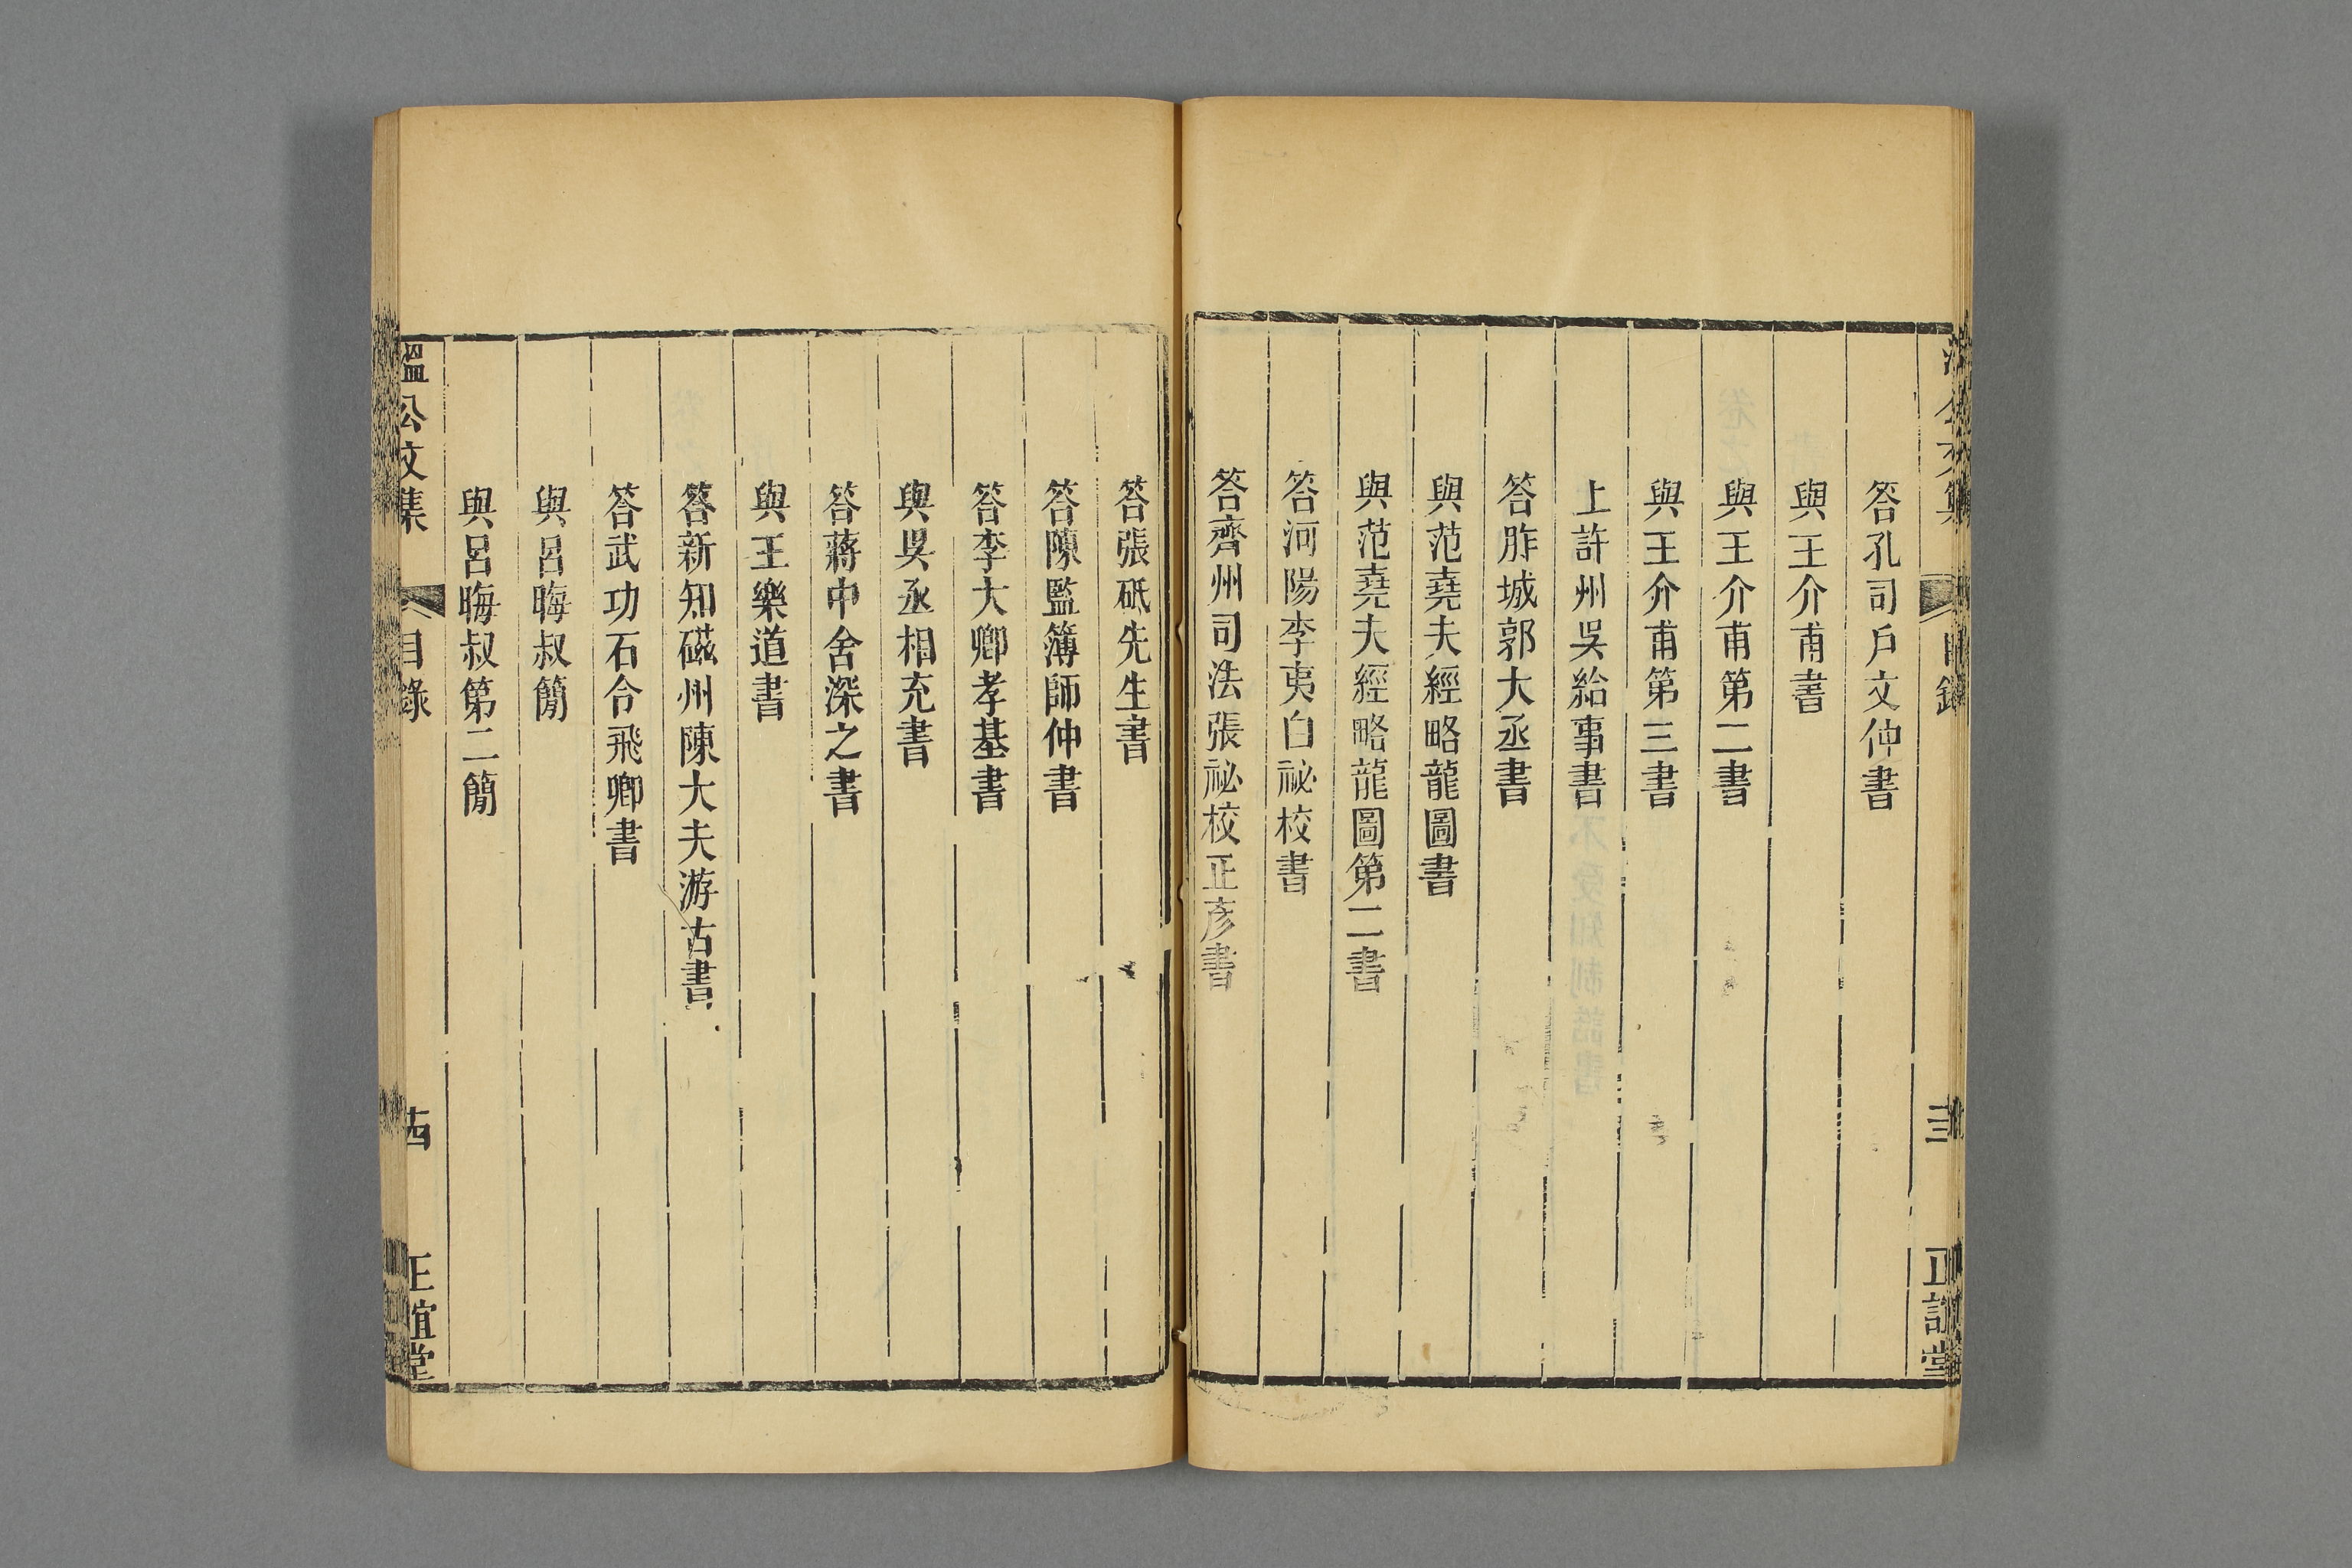 溫公文集 目錄 圭 正誼堂
答孔司戶文仲書
與王介甫書
與王介甫第二書
與王介甫第三書
上許州吳給事書
答胙城郭大丞書
與范堯夫經略龍圖書
與范堯夫經略龍圖第二書
答河陽李夷白祕校書
答齊州司法張祕校正彥書
答張砥先生書
答陳監簿師仲書
答李大卿孝基書
與吳丞相充書
答蔣中舍深之書
與王樂道書
答新知磁州陳大夫游古書
答武功石令飛卿書
與呂晦叔簡
與呂晦叔第二簡
溫公文集 目錄 正誼堂